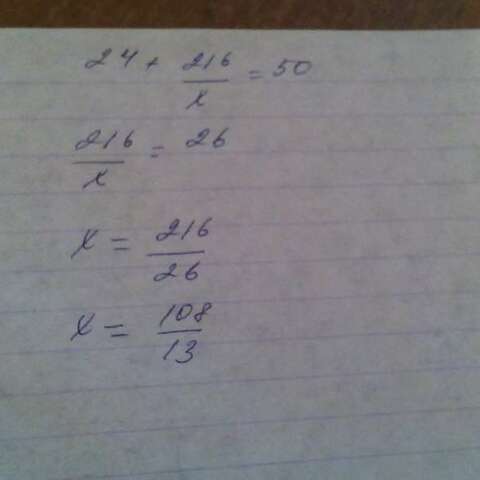 24 + 216/x = 50
216/x = 26
x = 216/26
x = 108/13